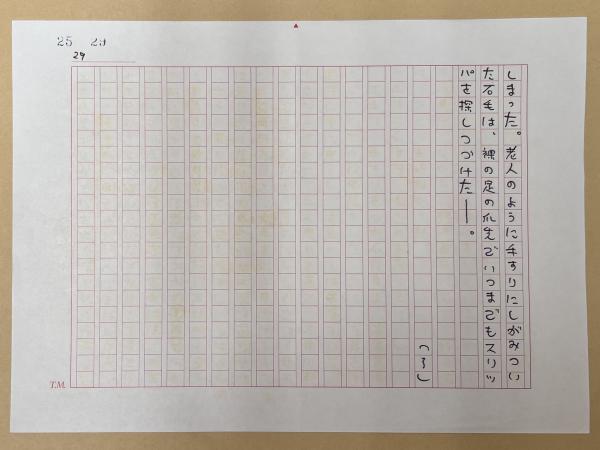 25 29
29
しまった。老人のように手すりにしがみつい
た石毛は、裸の足の爪先でいつまでもスリッ
パを探しつづけた──。
(つるし
T.M.